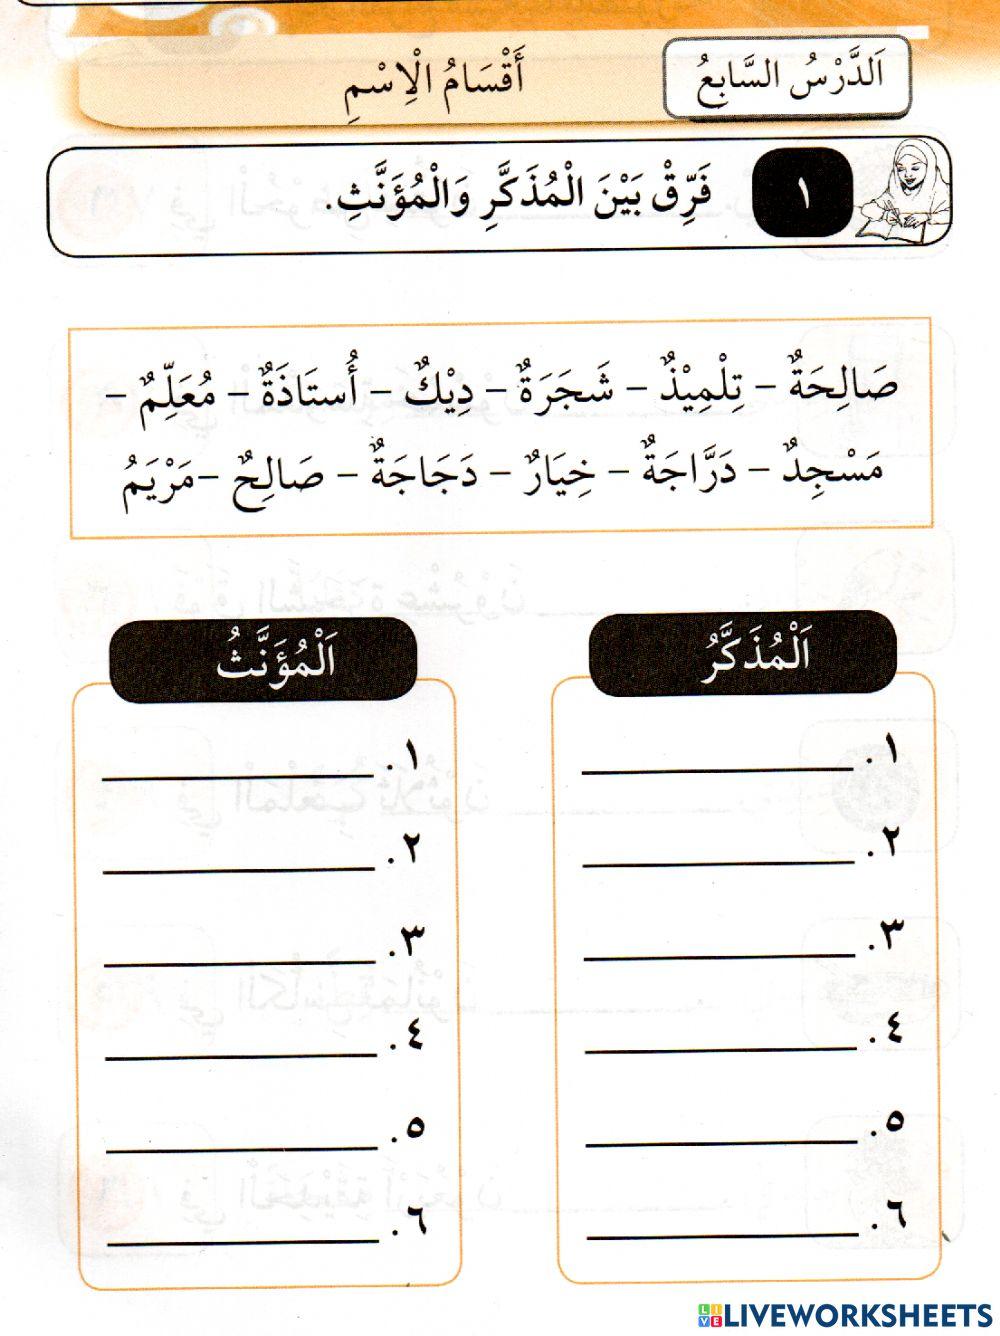 اَلدَّرْسُ السَّابِعُ
أَقْسَامُ الْاِسْمِ
١ فَرِّقْ بَيْنَ الْمُذَكَّرِ وَالْمُؤَنَّثِ.
صَالِحَةٌ – تِلْمِيْذٌ – شَجَرَةٌ – دِيْكٌ – أُستَاذَةٌ – مُعَلِّمٌ –
مَسْجِدٌ – دَرَّاجَةٌ – خِيَارٌ – دَجَاجَةٌ – صَالِحٌ –مَرْيَمُ
اَلْمُذَكَّرُ
١. ____________
٢. ____________
٣. ____________
٤. ____________
٥. ____________
٦. ____________
اَلْمُؤَنَّثُ
١. ____________
٢. ____________
٣. ____________
٤. ____________
٥. ____________
٦. ____________
LIVE LIVEWORKSHEETS